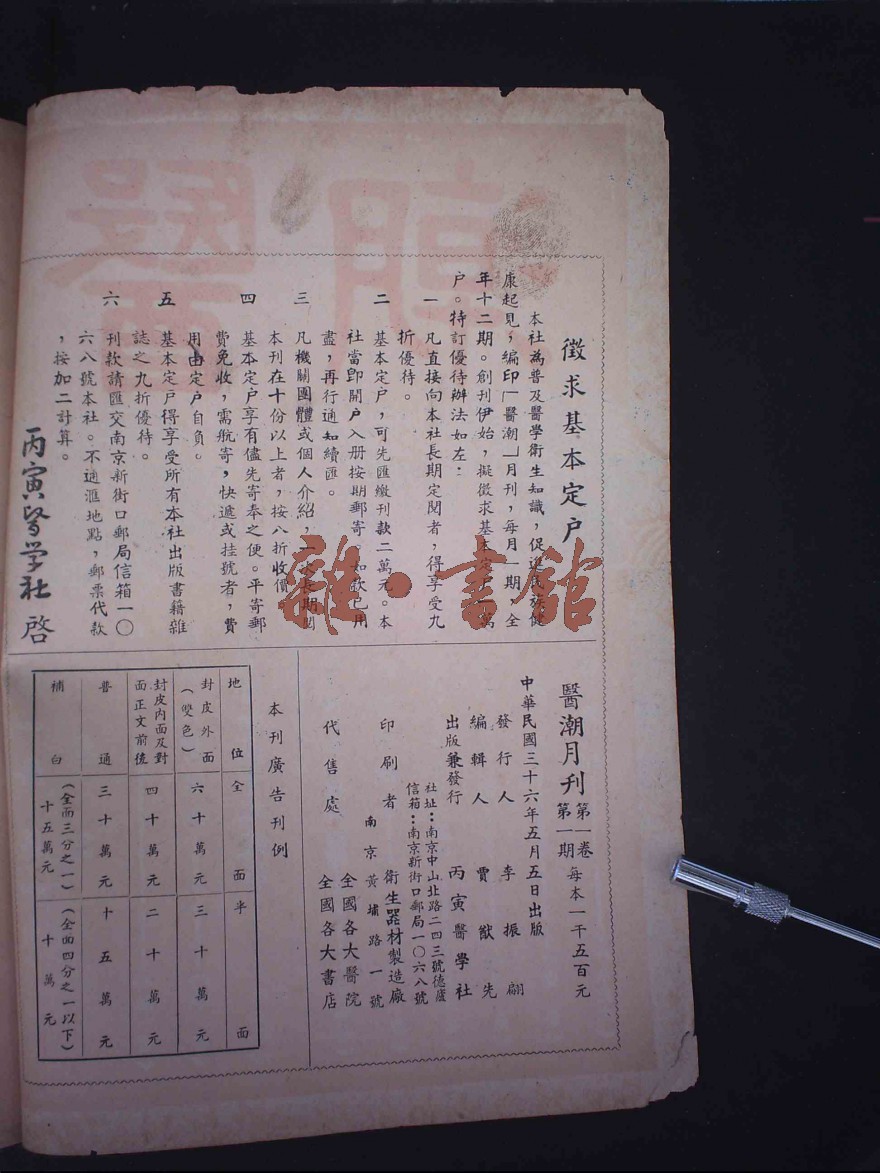 徵求基本定戶
本社為普及醫學衛生知識，促進民族健
康起見，編印「醫潮」月刊，每月一期，全
年十二期。創刊伊始，擬徵求基本定戶一萬
戶。特訂優待辦法如左：
一　凡直接向本社長期定閱者，得享受九
折優待。
二　基本定戶，可先匯繳刊款二萬元。本
社當即開戶入册按期郵寄，如款已用
盡，再行通知續匯。
三　凡機關團體或個人介紹，一次長期閱
本刊在十份以上者，按八折收價。
四　基本定戶享有儘先寄奉之便。平寄郵
費免收，需航寄，快遞或挂號者，費
用由定戶自負。
五　基本定戶得享受所有本社出版書籍雜
誌之九折優待。
六　刊款請匯交南京新街口郵局信箱一〇
六八號本社。不通滙地點，郵票代款
，按加二計算。
丙寅醫学社 啓
醫潮月刊　第一卷第一期　每本一千五百元
中華民國三十六年五月五日出版
發行人　李振翩
編輯人　賈猷先
出版兼發行　丙寅醫學社
社址：南京中山北路二四三號德廬
信箱：南京新街口郵局一〇六八號
印刷者　衛生器材製造廠
南京黃埔路一號
代售處　全國各大醫院
全國各大書店
本刊廣告刊例
地位　全面　半面
封皮外面（雙色）　六十萬元　三十萬元
封皮內面及對面正文前後　四十萬元　二十萬元
普通　三十萬元　十五萬元
補白　（全面三分之一）十五萬元　（全面四分之一以下）十萬元
雜·書館
醫潮